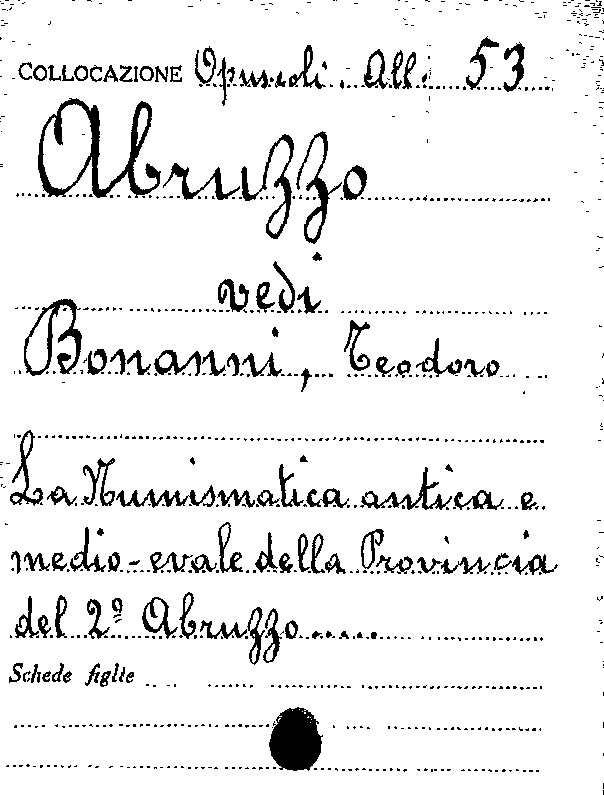 COLLOCAZIONE Opuscoli. All. 53
Abruzzo
vedi
Bonanni, Teodoro
La Numismatica antica e
medio-evale della Provincia
del 2º Abruzzo.....
Schede figlie